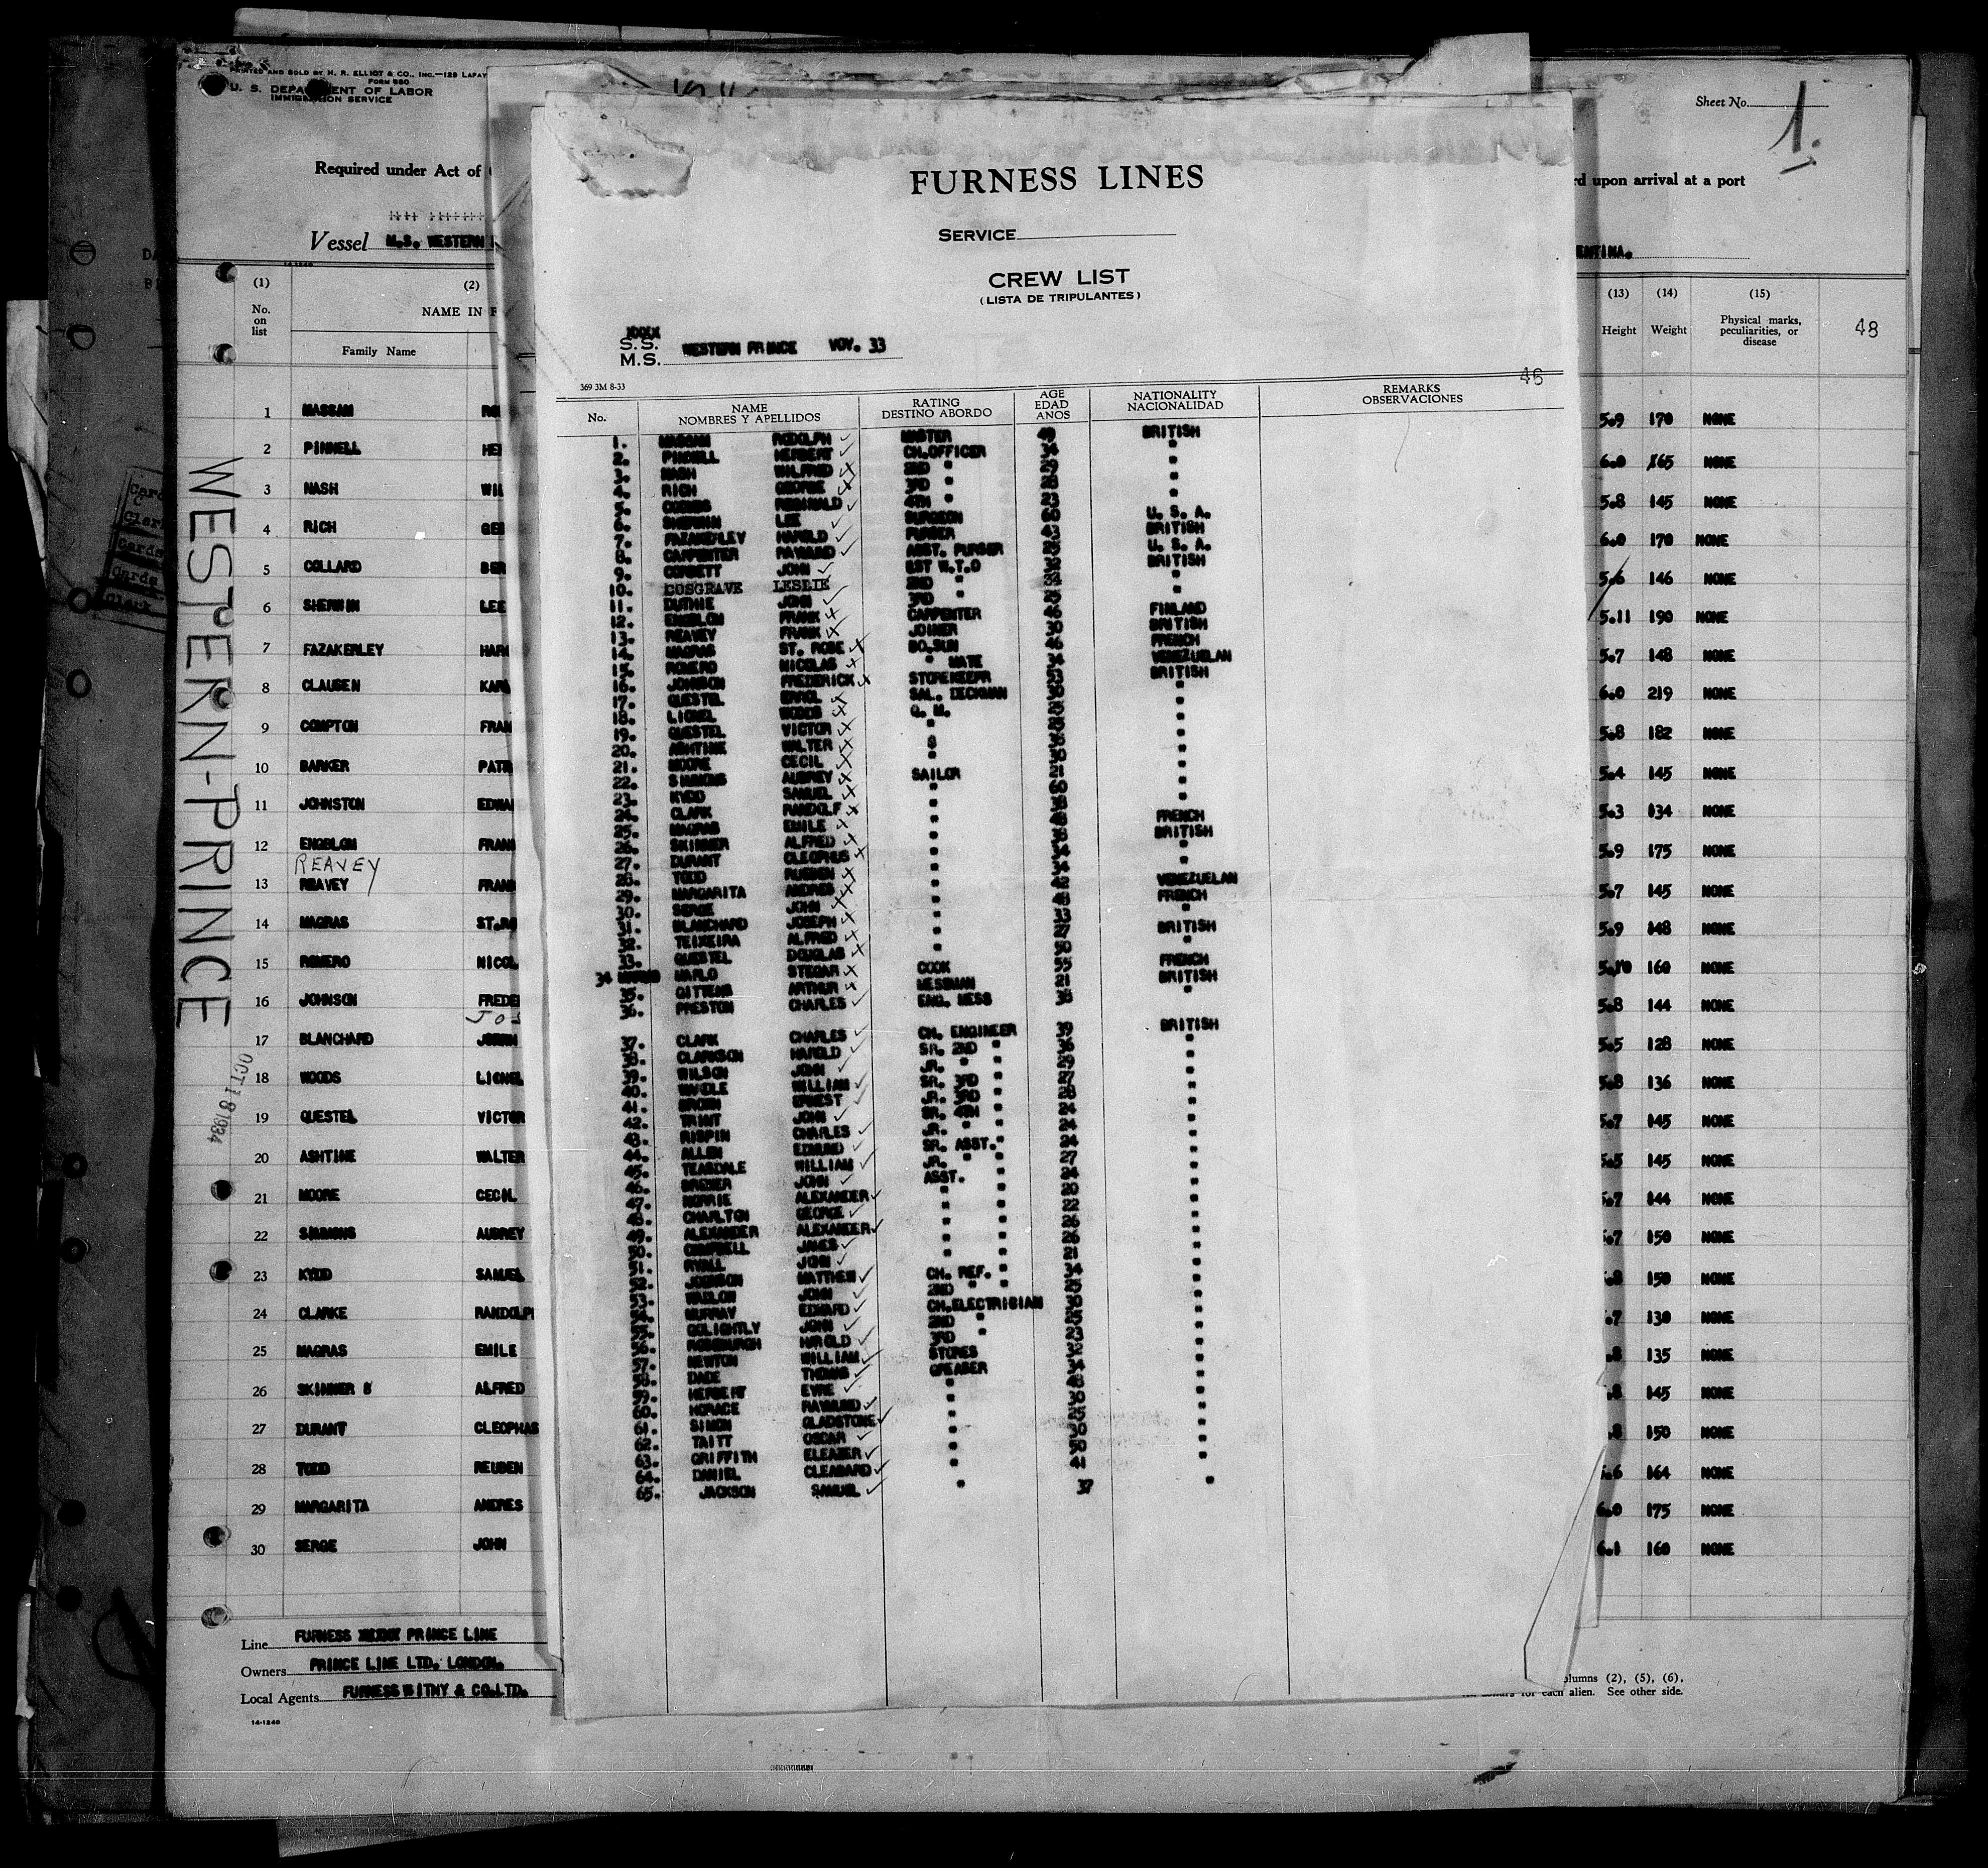 PRINTED AND SOLD BY H. R. ELLIOT & CO., INC.—128 LAFAY
FORM 680
U. S. DEPARTMENT OF LABOR
IMMIGRATION SERVICE
Required under Act of
Vessel M.S. WESTERN
(1) (2)
No. on list
NAME IN F
Family Name
1 MASSAM
2 PINNELL HE
3 NASH WIL
4 RICH GE
5 COLLARD BER
6 SHERWIN LEE
7 FAZAKERLEY HAR
8 CLAUSEN KAR
9 COMPTON FRAN
10 BARKER PATR
11 JOHNSTON EDWA
12 ENGBLOM FRAN
REAVEY
13 REAVEY FRAN
14 MAGRAS ST.RO
15 ROMERO NICOL
16 JOHNSON FREDE
JOS
17 BLANCHARD
18 WOODS LIONEL
19 QUESTEL VICTOR
20 ASHTINE WALTER
21 MOORE CECIL
22 SIMMONS AUBREY
23 KYDD SAMUEL
24 CLARKE RANDOLPH
25 MAGRAS EMILE
26 SKINNER ALFRED
27 DURANT CLEOPHAS
28 TODD REUBEN
29 MARGARITA ANDRES
30 SERGE JOHN
Line FURNESS PRINCE LINE
Owners PRINCE LINE LTD. LONDON.
Local Agents FURNESS WITHY & CO.LTD.
14-1240
WESTERN-PRINCE
OCT 18 1934
FURNESS LINES
SERVICE
CREW LIST
(LISTA DE TRIPULANTES)
XXXX
S.S.
M.S. WESTERN PRINCE VOY. 33
369 3M 8-33
46
No. NAME NOMBRES Y APELLIDOS RATING DESTINO ABORDO AGE EDAD ANOS NATIONALITY NACIONALIDAD REMARKS OBSERVACIONES
1. MASSAM RODOLPH MASTER 49 BRITISH
2. PINNELL HERBERT CH.OFFICER "
3. NASH WILFRED 2ND " "
4. RICH GEORGE 3RD " "
5. REGINALD 4TH " 23 "
6. SHERWIN LEE SURGEON 60 U. S. A.
7. FAZAKERLEY HAROLD PURSER 43 BRITISH
8. CARPENTER RAYMOND ASST. PURSER U. S. A.
9. CORBETT JOHN 1ST W.T.O BRITISH
10. COSGRAVE LESLIE 2ND " "
11. DUTHIE JOHN 3RD " 25 "
12. ENGBLOM FRANK CARPENTER 46 FINLAND
13. REAVEY FRANK JOINER 30 BRITISH
14. MAGRAS ST. ROSE BO.SUN 46 FRENCH
15. ROMERO NICOLAS " MATE 34 VENEZUELAN
16. JOHNSON FREDERICK STOREKEEPR 53 BRITISH
17. QUESTEL SAL. DECKMAN 30 "
18. LIONEL WOODS Q. M. "
19. QUESTEL VICTOR " "
20. ASHTINE WALTER " "
21. MOORE CECIL " 30 "
22. SIMMONS AUBREY SAILOR 21 "
23. KYDD SAMUEL " 60 "
24. CLARK RANDOLF " "
25. MAGRAS EMILE " FRENCH
26. SKINNER ALFRED " BRITISH
27. DURANT CLEOPHUS " 34 "
28. TODD RUEBEN " 34 "
29. MARGARITA ANDRES " 42 VENEZUELAN
30. SERGE JOHN " FRENCH
31. BLANCHARD JOSEPH " 33 "
32. TEIXEIRA ALFRED " 27 BRITISH
33. QUESTEL DOUGLAS " 50 "
34 MARLO STEGAR COOK 55 FRENCH
35. GITTENS ARTHUR MESSMAN 21 BRITISH
36. PRESTON CHARLES ENG. MESS "
37. CLARK CHARLES CH. ENGINEER 39 BRITISH
38. CLARKSON HAROLD SR. 2ND " "
39. WILSON JOHN JR. " " 29 "
40. WILLIAM SR. 3RD " 27 "
41. BROWN ERNEST JR. 3RD " 28 "
42. TRINT JOHN SR. 4TH " 24 "
43. RISPIN CHARLES JR. " " 24 "
44. ALLEN EDMUND SR. ASST." 24 "
45. TEASDALE WILLIAM JR. " " 27 "
46. BREMER JOHN ASST. " 24 "
47. NORRIE ALEXANDER " " 20 "
48. CHARLTON GEORGE " " 22 "
49. ALEXANDER ALEXANDER " " 26 "
50. CAMPBELL JAMES " " 26 "
51. RYALL JOHN " " 21 "
52. JOHNSON MATTHEW CH. REF. " 34 "
53. JOHN 2ND " " 25 "
54. MURRAY EDWARD CH.ELECTRICIAN 30 "
55. GOLIGHTLY JOHN 2ND " 25 "
56. ROXBURGH HAROLD 3RD " 23 "
57. NEWTON WILLIAM STORES 32 "
58. DADE THOMAS GREASER 34 "
59. HERBERT EYRE " 48 "
60. HORACE RAYMUND " 30 "
61. SIMON GLADSTONE " "
62. TAITT OSCAR " 30 "
63. GRIFFITH ELEAZER " 50 "
64. DANIEL CLEABARD " 41 "
65. JACKSON SAMUEL " 37 "
Sheet No. 1.
rd upon arrival at a port
ENTINA.
(13) (14) (15)
Height Weight Physical marks, peculiarities, or disease 48
5.9 170 NONE
6.0 165 NONE
5.8 145 NONE
6.0 170 NONE
5.6 146 NONE
5.11 190 NONE
5.7 148 NONE
6.0 219 NONE
5.8 182 NONE
5.4 145 NONE
5.3 134 NONE
5.9 175 NONE
5.7 145 NONE
5.9 148 NONE
5.10 160 NONE
5.8 144 NONE
5.5 128 NONE
5.8 136 NONE
5.7 145 NONE
5.5 145 NONE
5.7 144 NONE
.7 150 NONE
.8 150 NONE
.7 130 NONE
.8 135 NONE
.8 145 NONE
.8 150 NONE
5.6 164 NONE
6.0 175 NONE
6.1 160 NONE
olumns (2), (5), (6),
for each alien. See other side.